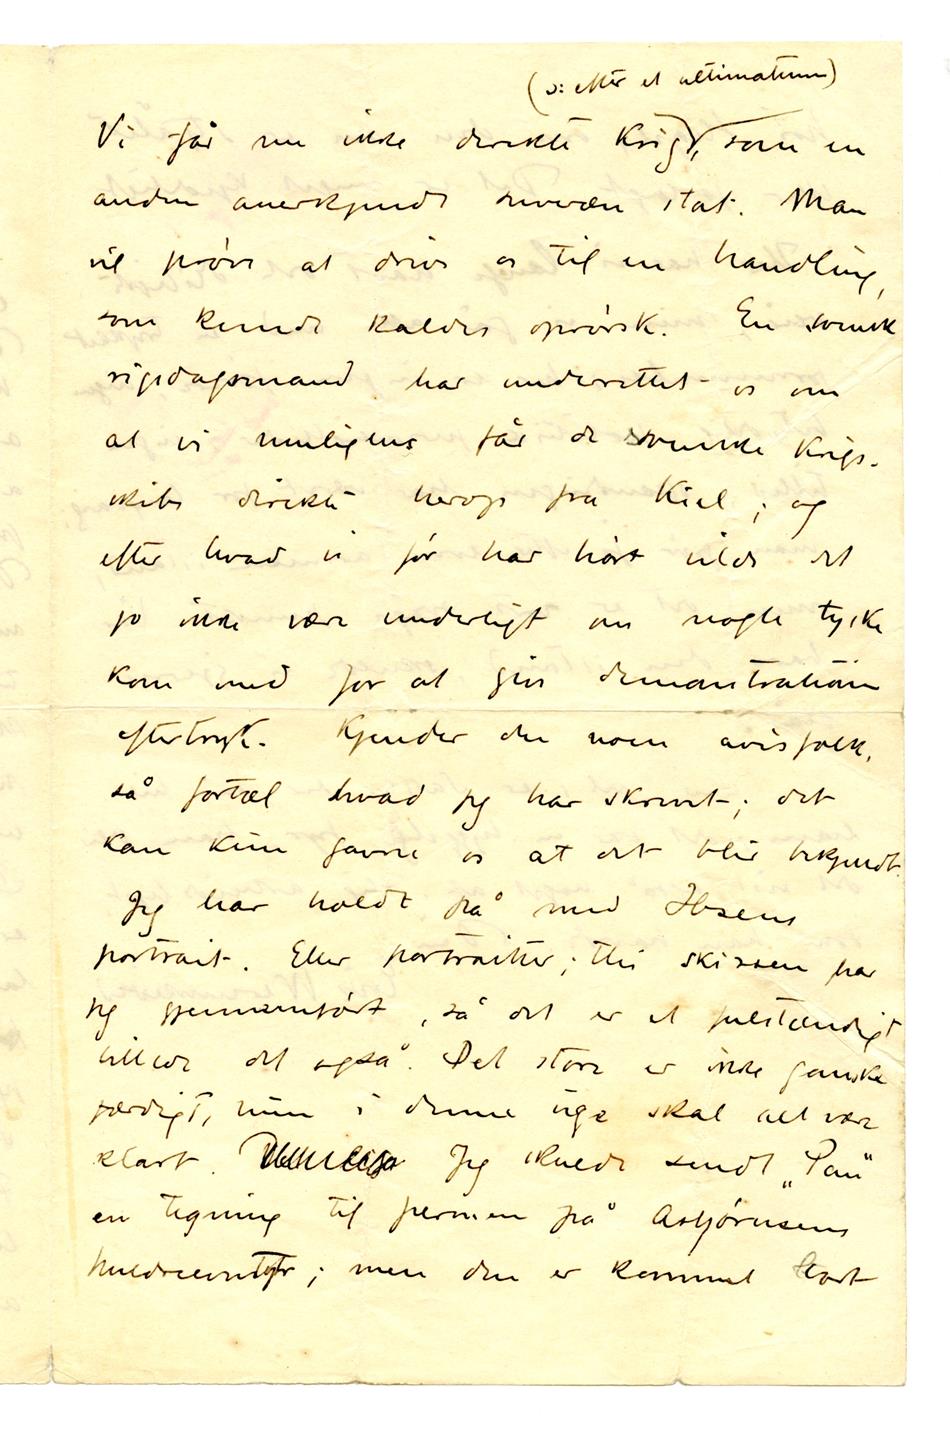 (ɔ: efter et ultimatum)
Vi får nu ikke direkte krig, som en
anden anerkjendt suveræn stat. Man
vil prøve at drive os til en handling,
som kunde kaldes oprørsk. En svensk
rigsdagsmand har underrettet os om
at vi muligens får de svenske krigs-
skibe direkte herop fra Kiel; og
efter hvad vi før har hørt vilde det
jo ikke være underligt om nogle tyske
kom med for at give demonstrationen
eftertryk. Kjender du noen avisfolk,
så fortæl hvad jeg har skrevet; det
kan kun gavne os at det blir bekjendt.
Jeg har holdt på med Ibsens
portrait. Eller portraiter; thi skissen har
jeg gjennemført, så det er et fulstændigt
billede det også. Det store er ikke ganske
færdigt, men i denne uge skal alt være
klart. Jeg skulde sendt „Pan“
en tegning til permen på Asbjørnsens
huldreeventyr; men den er kommet bort